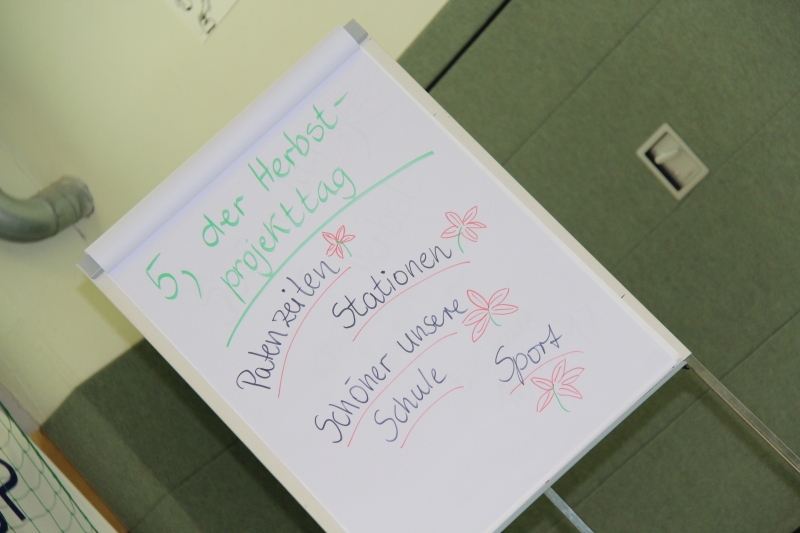 5, der Herbst-
projekttag
Patenzeiten
Stationen
Schöner unsere
Schule
Sport